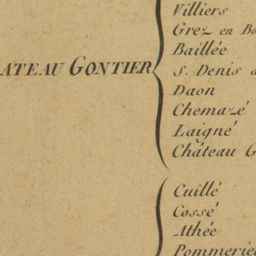 Villiers
Grez en Bo
Baillée
ATEAU GONTIER
S. Denis
Daon
Chemazé
Laigné
Château G
Cuillé
Cossé
Athée
Pommerie